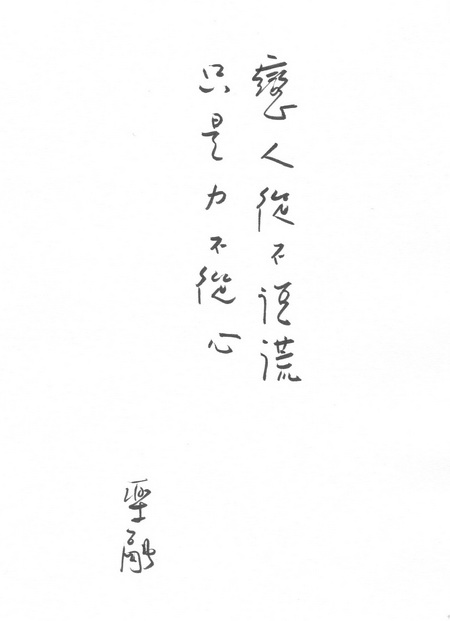 戀人從不說謊
只是力不從心